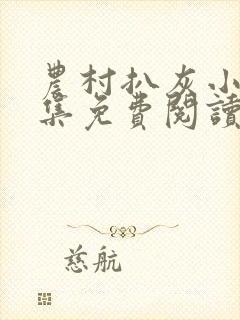 農村扒灰小
集免費閱讀
慈航